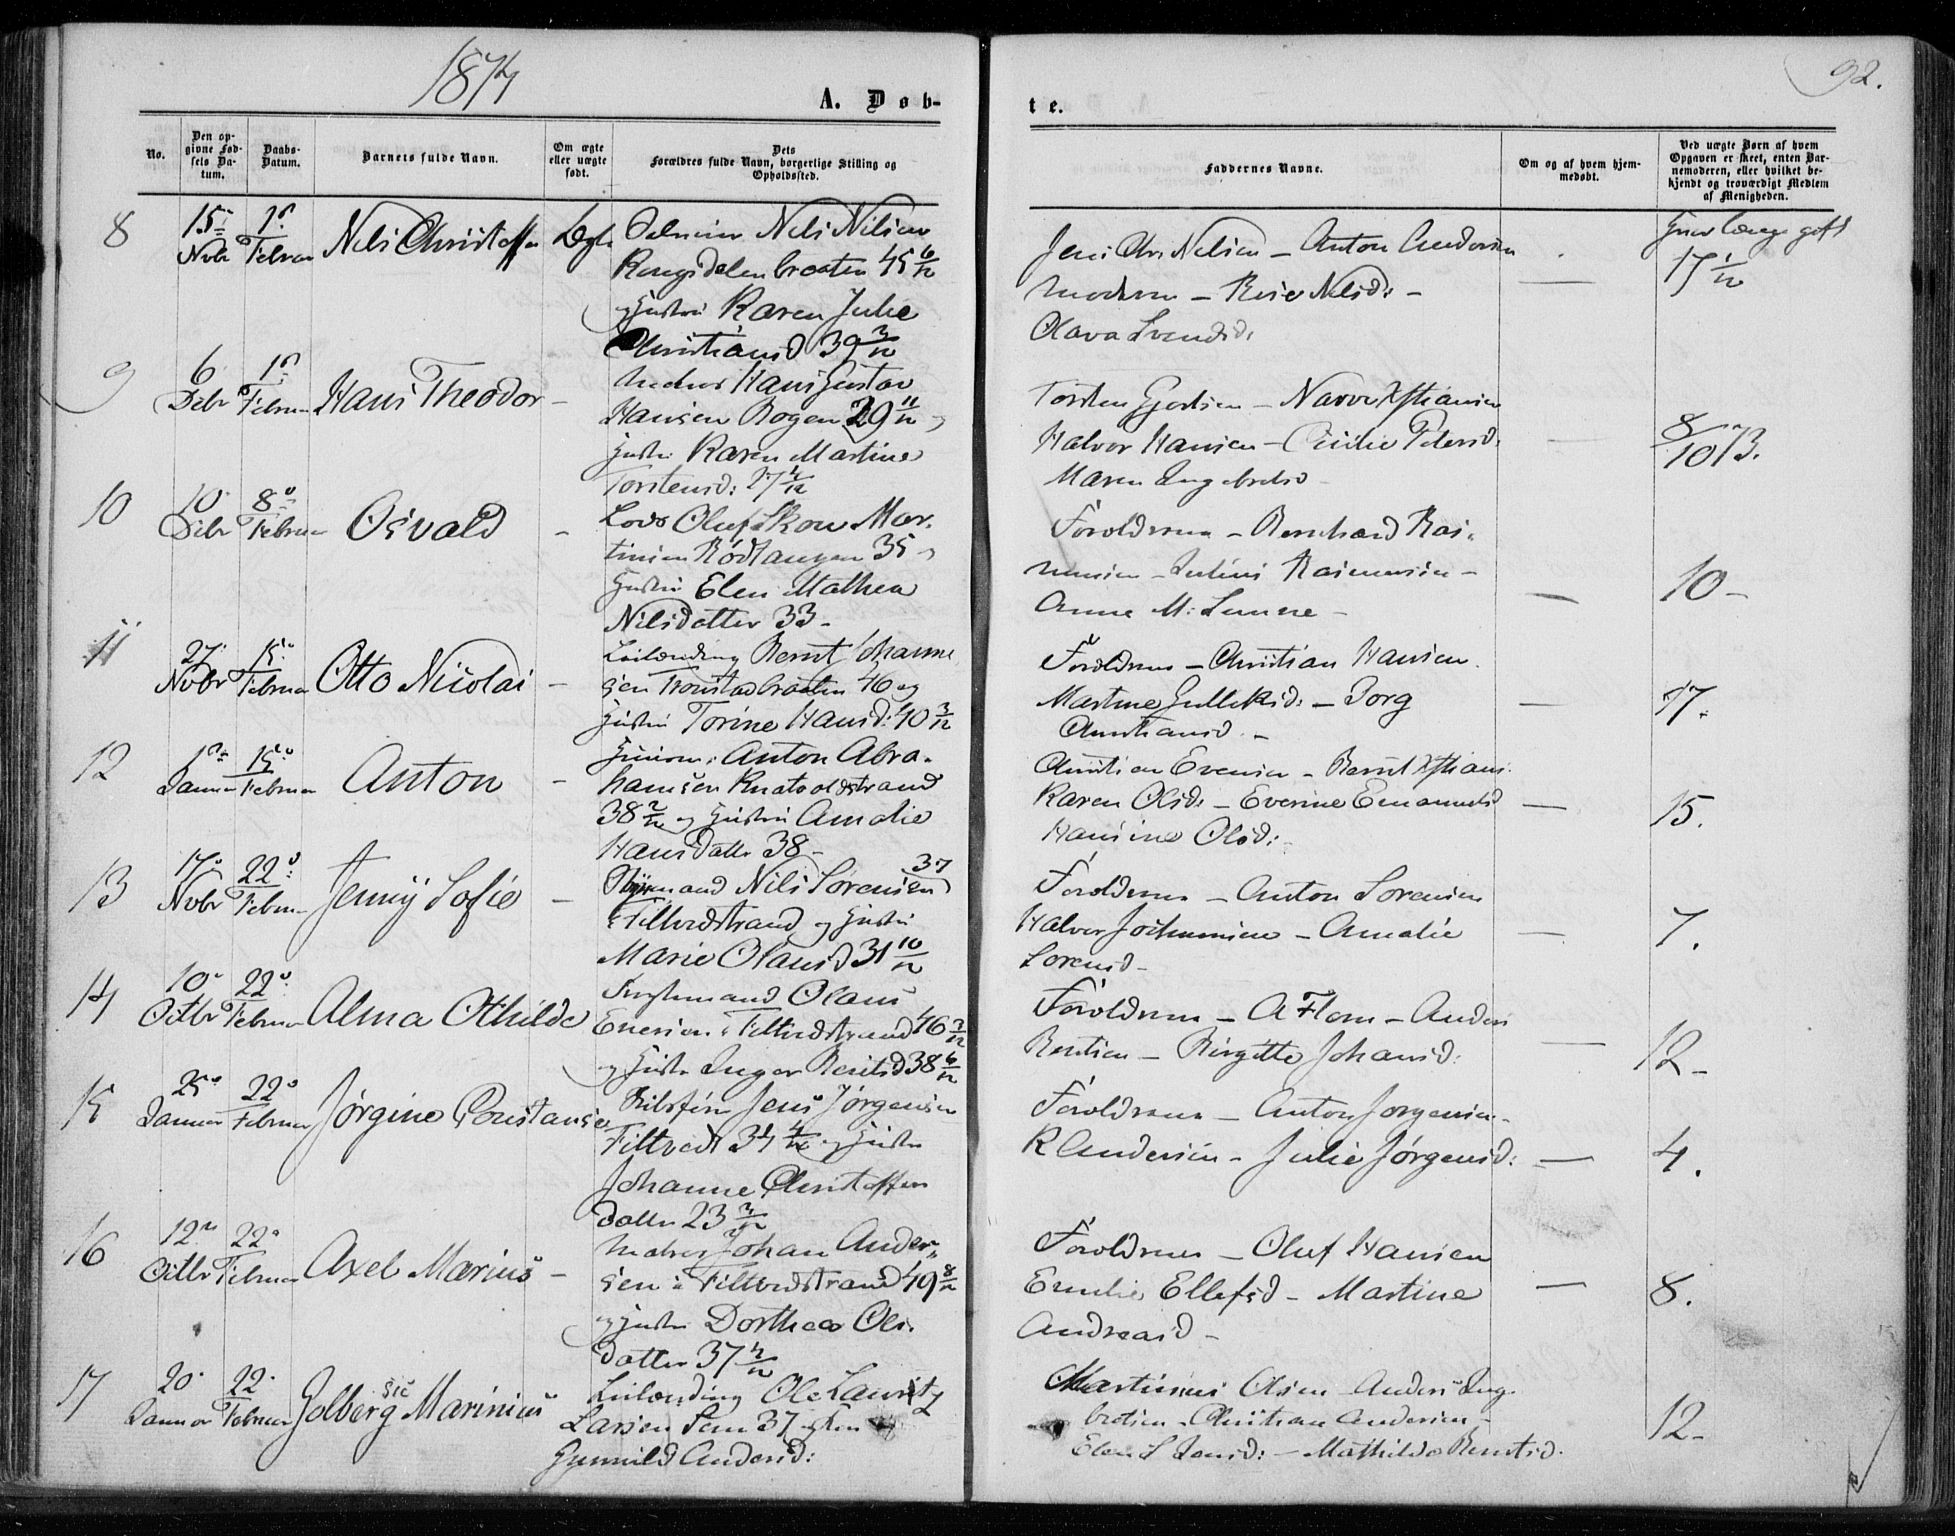 1874
92.
A. Døb-
te.
No.
Den op-
givne Fød-
sels Da-
tum.
Daabs-
Datum.
Barnets fulde Navn.
Om ægte
eller uægte
født.
Dets
Forældres fulde Navn, borgerlige Stilling og
Opholdssted.
Faddernes Navne.
Om og af hvem hjem-
medøbt.
Ved uægte Børn af hvem
Opgaven er skeet, enten Bar-
nemoderen, eller hvilket be-
kjendt og troværdigt Medlem
af Menigheden.
8
15
Novbr
1
Februar
Nils Christoffer
Nils Nilsen
45 6/12
og Hustru Karen Julie
Christiansd 39 3/12
Jens Chr. Nilsen - Anton Andersen
Moderen - Nilsd:
Olava Svendsd:
længe gift
17 1/12
9
6
Debr
1
Februar
Hans Theodor -
Hans Gustav
Hansen Bogen 29 11/12 og
Hustru Karen Martine
Torstensd: 27 4/12
Torsten Gjertsen -
Halvor Hansen - Cecilie Petersd.
Maren Ingebretsd -
8/10 73.
10
10
Debr
8
Februar
Osvald -
Lods Oluf Skou Mar-
tinsen Rødtangen 35 og
Hustru Elen Mathea
Nilsdatter 33 -
Forældrene - Bernhard Ras-
mussen - Julius Rasmussen -
Anne M: Lunne -
10 -
11
27
Novbr
15
Februar
Otto Nicolai -
Leilænding Bernt Johanne
sen Tronstadbraaten 46 og
Hustru Torine Hansd: 40 3/12
Forældrene - Christian Hansen.
Martine Gulliksd: - Borg
Christiansd. -
17.
12
1
Januar
15
Februar
Anton -
Anton Abra-
hamsen Knatvoldstrand
38 2/12 og Hustru Amalie
Hansdatter 38 -
Christian Evensen - Bernt Xstians.
Karen Olsd: - Everine Emanuelsd
Hansine Olsd:
15.
13
17
Novbr
22
Februar
Jenny Sofie -
Styrmand Nils Sørensen 37
Filtvedstrand og Hustru
Marie Olausd 31 10/12
Forældrene - Anton Sørensen
Halvor Jochumsen - Amalie
Sørensd -
7.
14
10
Octbr
22
Februar
Alma Othilde
Olaus
Enersen i Filtvedstrand 46 3/12
og Hustru Inger Berntsd 38 6/12
Forældrene - A Flom - Anders
Berntsen - Birgitte Johansd:
12 -
15
25
Januar
22
Februar
Jørgine Constanse
Jens Jørgensen
Filtvedt 34 4/12 og Hustru
Johanne Christoffer
datter 23 3/12
Forældrene - Anton Jørgensen -
K Andersen - Julie Jørgensd:
4.
16
12
Octbr
22
Februar
Axel Marius -
Johan Ander-
sen i Filtvedstrand 49 8/12
og Hustru Dorthea Ols-
datter 37 4/12
Forældrene - Oluf Hansen
Emilie Ellefsd - Martine
Andreasd -
8.
17
20
Januar
22
Februar
sic
Golberg Marinius
Leilænding Ole Lauritz
Larsen Sem 37 og
Gunnild Andersd:
Martinius Olsen - Anders Inge-
bretsen - Christian Andersen -
Elen S Jensd: - Mathilde Berntsd.
12 -